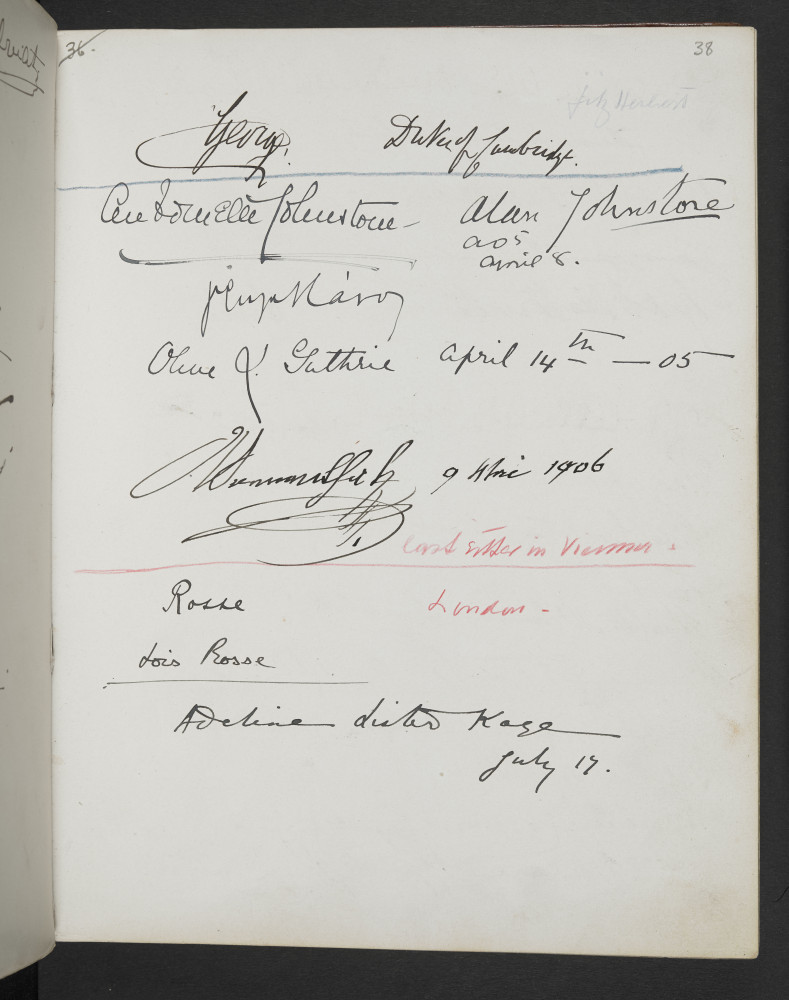 36. 38
Fitz Herbert
George. Duke of Cambridge.
Antoinette Johnstone Alan Johnstone
a05
April 8.
Olive L. Guthrie April 14th — 05
9 1906
last sitter in Vienna.
Rosse London -
Lois Rosse
Adeline Lister Kaye
July 17.